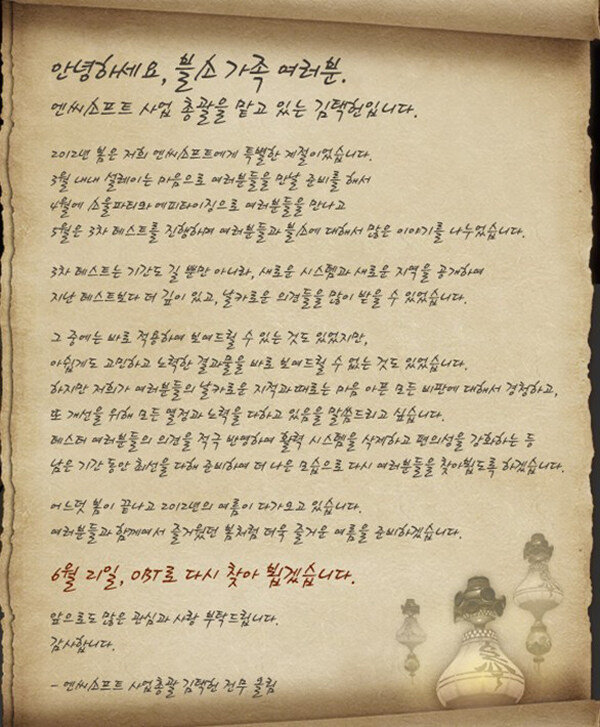 안녕하세요, 블소 가족 여러분.
엔씨소프트 사업 총괄을 맡고 있는 김택헌입니다.
2012년 봄은 저희 엔씨소프트에게 특별한 계절이었습니다.
3월 내내 설레이는 마음으로 여러분들을 만날 준비를 해서
4월에 소울파티와 에피타이징으로 여러분들을 만나고
5월은 3차 테스트를 진행하며 여러분들과 블소에 대해서 많은 이야기를 나누었습니다.
3차 테스트는 기간도 길 뿐만 아니라, 새로운 시스템과 새로운 지역을 공개하며
지난 테스트보다 더 깊이 있고, 날카로운 의견들을 많이 받을 수 있었습니다.
그 중에는 바로 적용하여 보여드릴 수 있는 것도 있었지만,
아쉽게도 고민하고 노력한 결과물을 바로 보여드릴 수 없는 것도 있었습니다.
하지만 저희가 여러분들의 날카로운 지적과 때로는 마음 아픈 모든 비판에 대해서 경청하고,
또 개선을 위해 모든 열정과 노력을 다하고 있음을 말씀드리고 싶습니다.
테스터 여러분들의 의견을 적극 반영하여 활력 시스템을 삭제하고 편의성을 강화하는 등
남은 기간 동안 최선을 다해 준비하여 더 나은 모습으로 다시 여러분들을 찾아뵙도록 하겠습니다.
어느덧 봄이 끝나고 2012년의 여름이 다가오고 있습니다.
여러분들과 함께여서 즐거웠던 봄처럼 더욱 즐거운 여름을 준비하겠습니다.
6월 21일, OBT로 다시 찾아 뵙겠습니다.
앞으로도 많은 관심과 사랑 부탁드립니다.
감사합니다.
- 엔씨소프트 사업총괄 김택헌 전무 올림